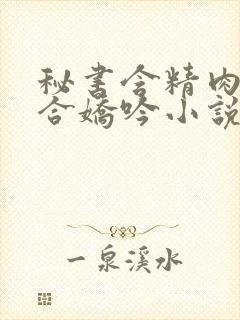 秘書含精肉
合嬌吟小說
一泉溪水